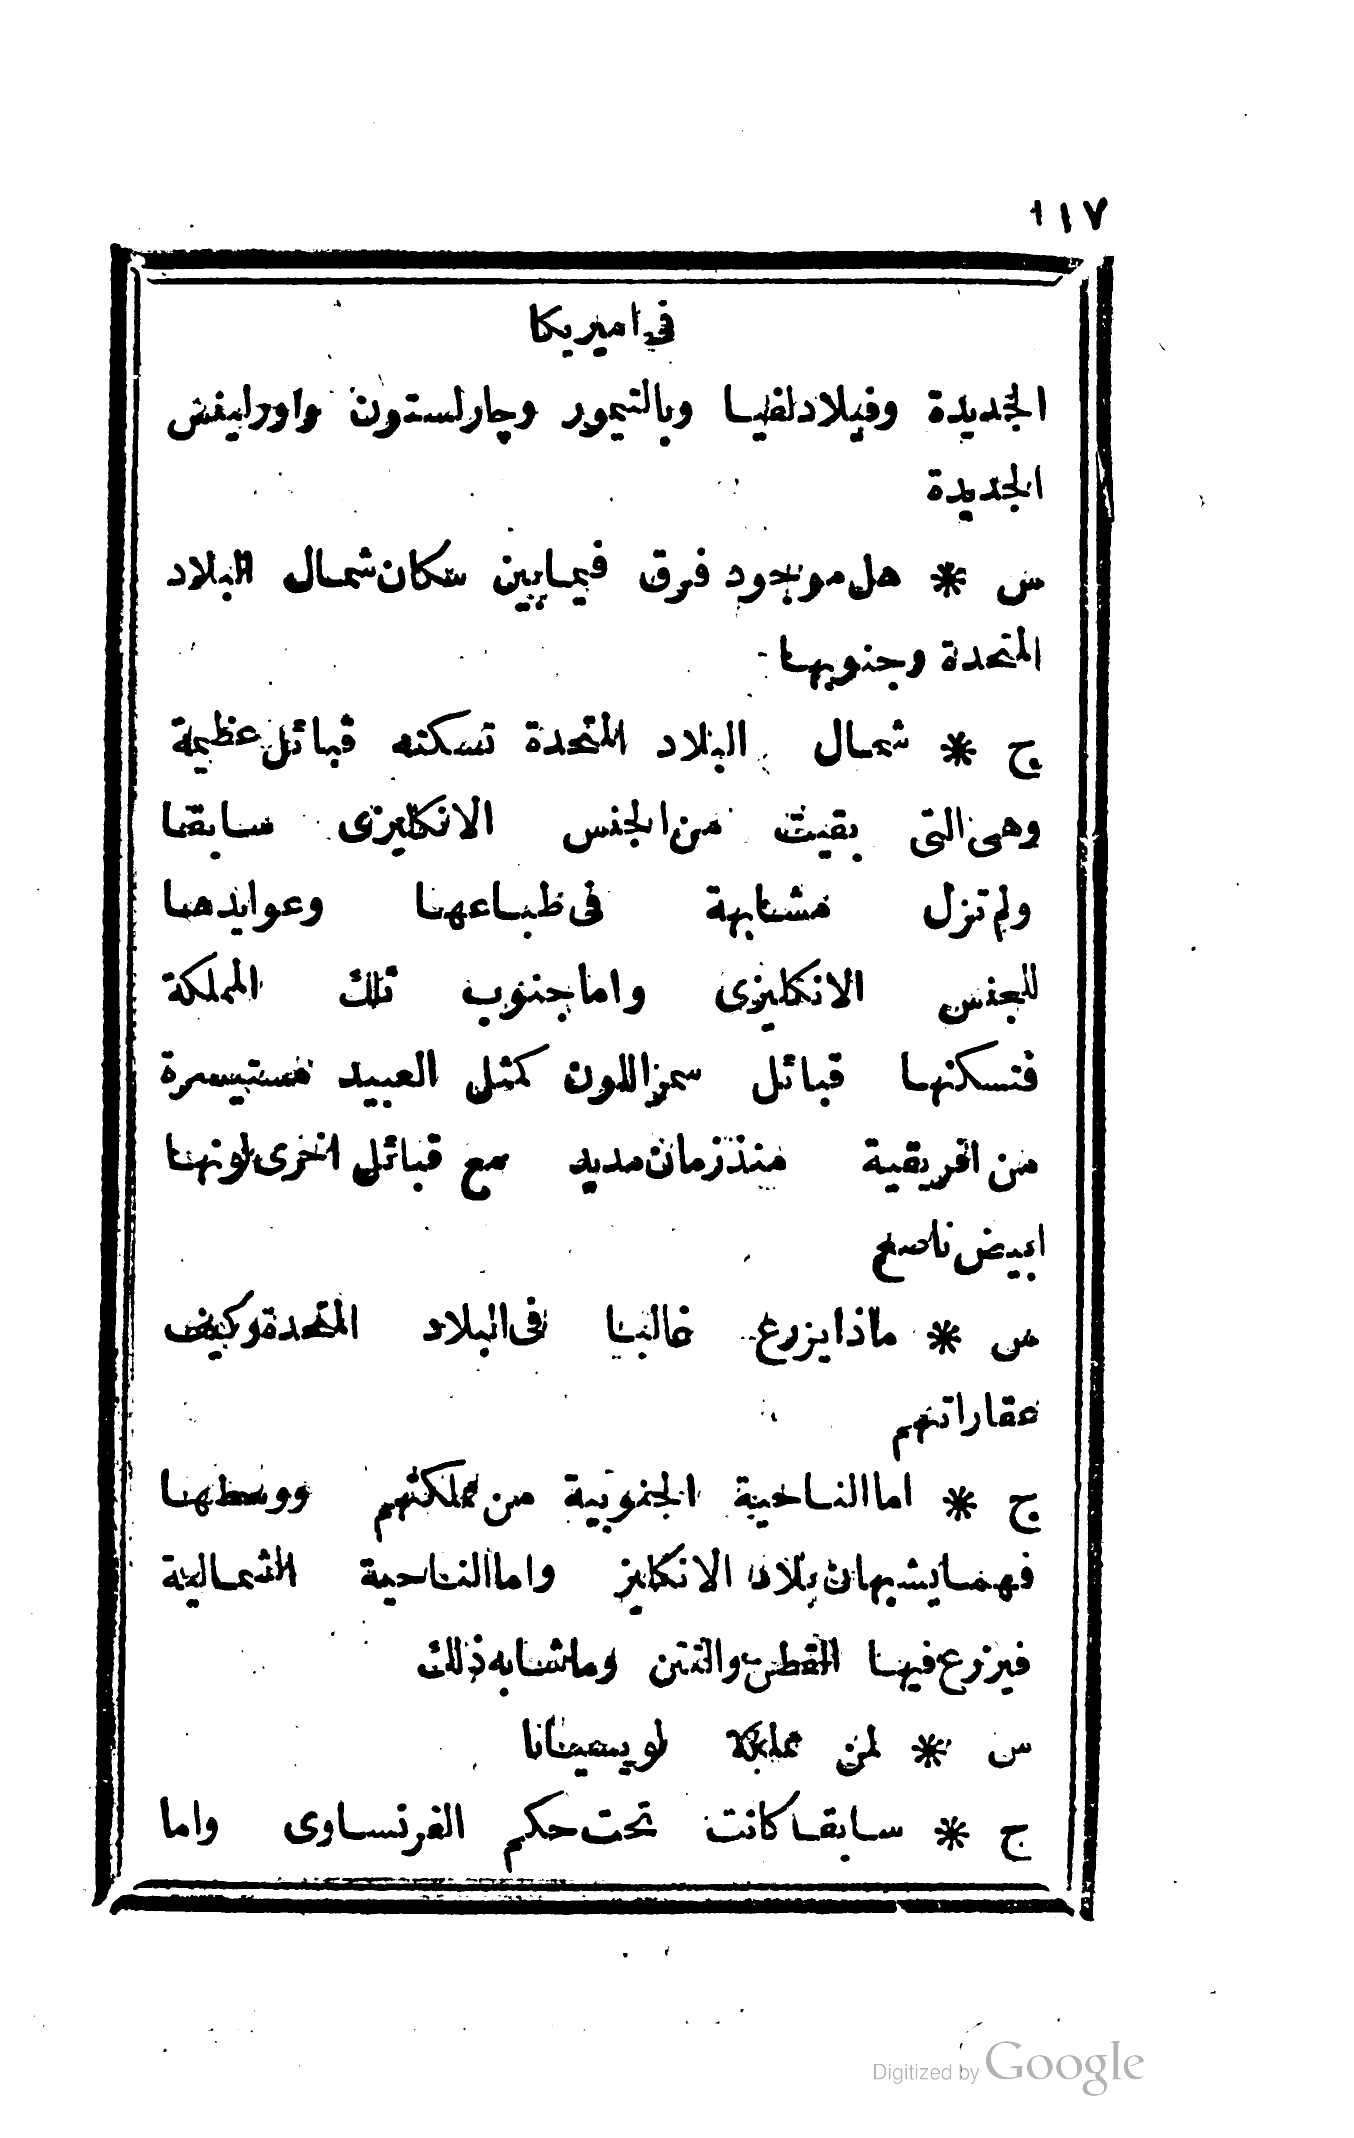 ١١٧
في اميريكا
الجديدة وفيلادلفيا وبالتيمور وچارلستون واورليفس
الجديدة
س * هل موجود فرق فيمابين سكان شمال البلاد
المتحدة وجنوبها
ج * شمال البلاد المتحدة تسكنه قبائل عظيمة
وهى التى بقيت من الجنس الانكليزى سابقا
ولم تزل مشابهة فى طباعها وعوايدها
للجنس الانكليزى واما جنوب تلك المملكة
فتسكنها قبائل سمر اللون كمثل العبيد مستيسرة
من افريقية منذ زمان مديد مع قبائل اخرى لونها
ابيض ناصع
س * ماذا يزرع غالبا فى البلاد المتحدة وكيف
عقاراتهم
ج * اما الناحية الجنوبية من مملكتهم ووسطها
فهما يشبهان بلاد الانكليز واما الناحية الشمالية
فيزرع فيها القطن والتتن وما شابه ذلك
س * لمن مملكة لويسيانا
ج * سابقا كانت تحت حكم الفرنساوى واما
Digitized by Google